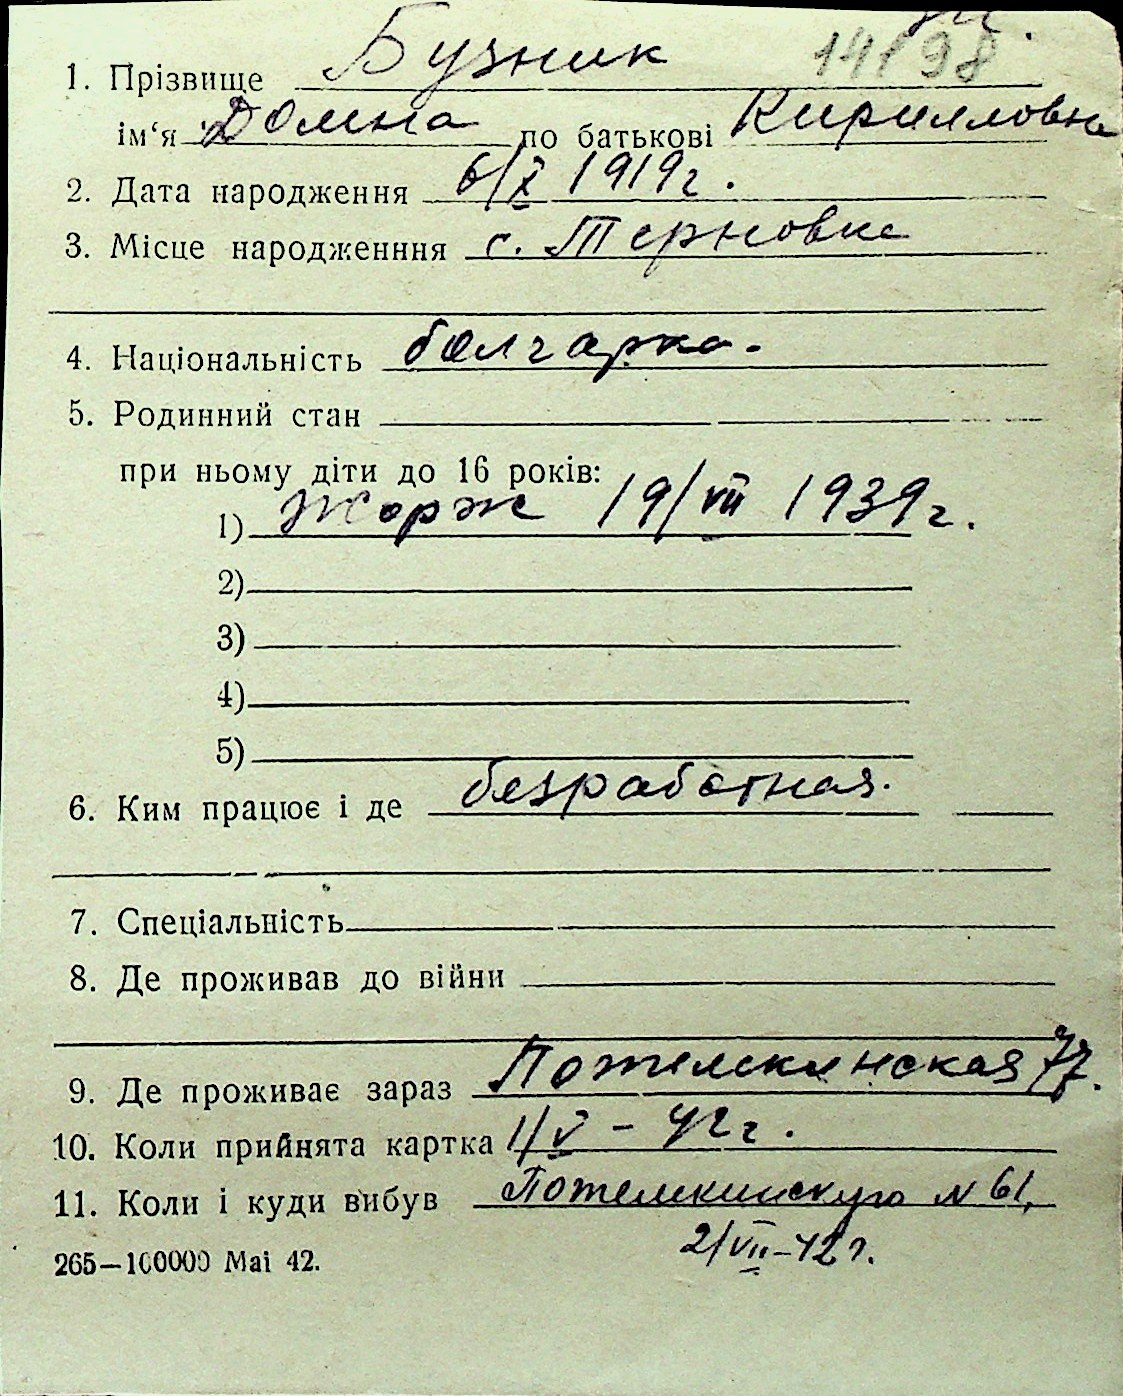 14198
1. Прізвище Бузник
ім‘я Домна по батькові Кирилловна
2. Дата народження 6/X 1919г.
3. Місце народженння с. Терновка
4. Національність болгарка.
5. Родинний стан
при ньому діти до 16 років:
1) Жорж 19/VII 1939г.
2)
3)
4)
5)
6. Ким працює і де безработная.
7. Спеціальність
8. Де проживав до війни
9. Де проживає зараз Потемкинская 77.
10. Коли прийнята картка 1/V – 42г.
11. Коли і куди вибув Потемкинскую №61,
2/VII–42г.
265—100000 Маі 42.